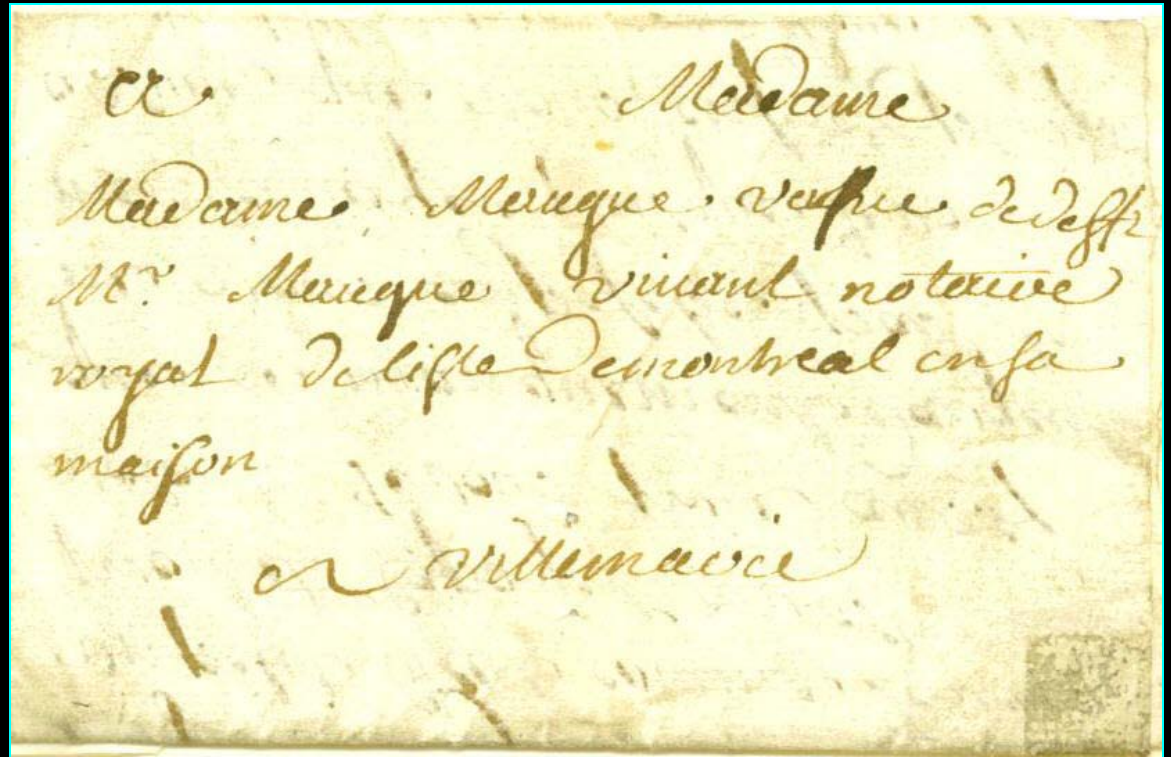 a Madame
Madame Maugue veufue de defft
Mr. Maugue viuant notaire
royal de lisle de montreal en sa
maison
a villemarie